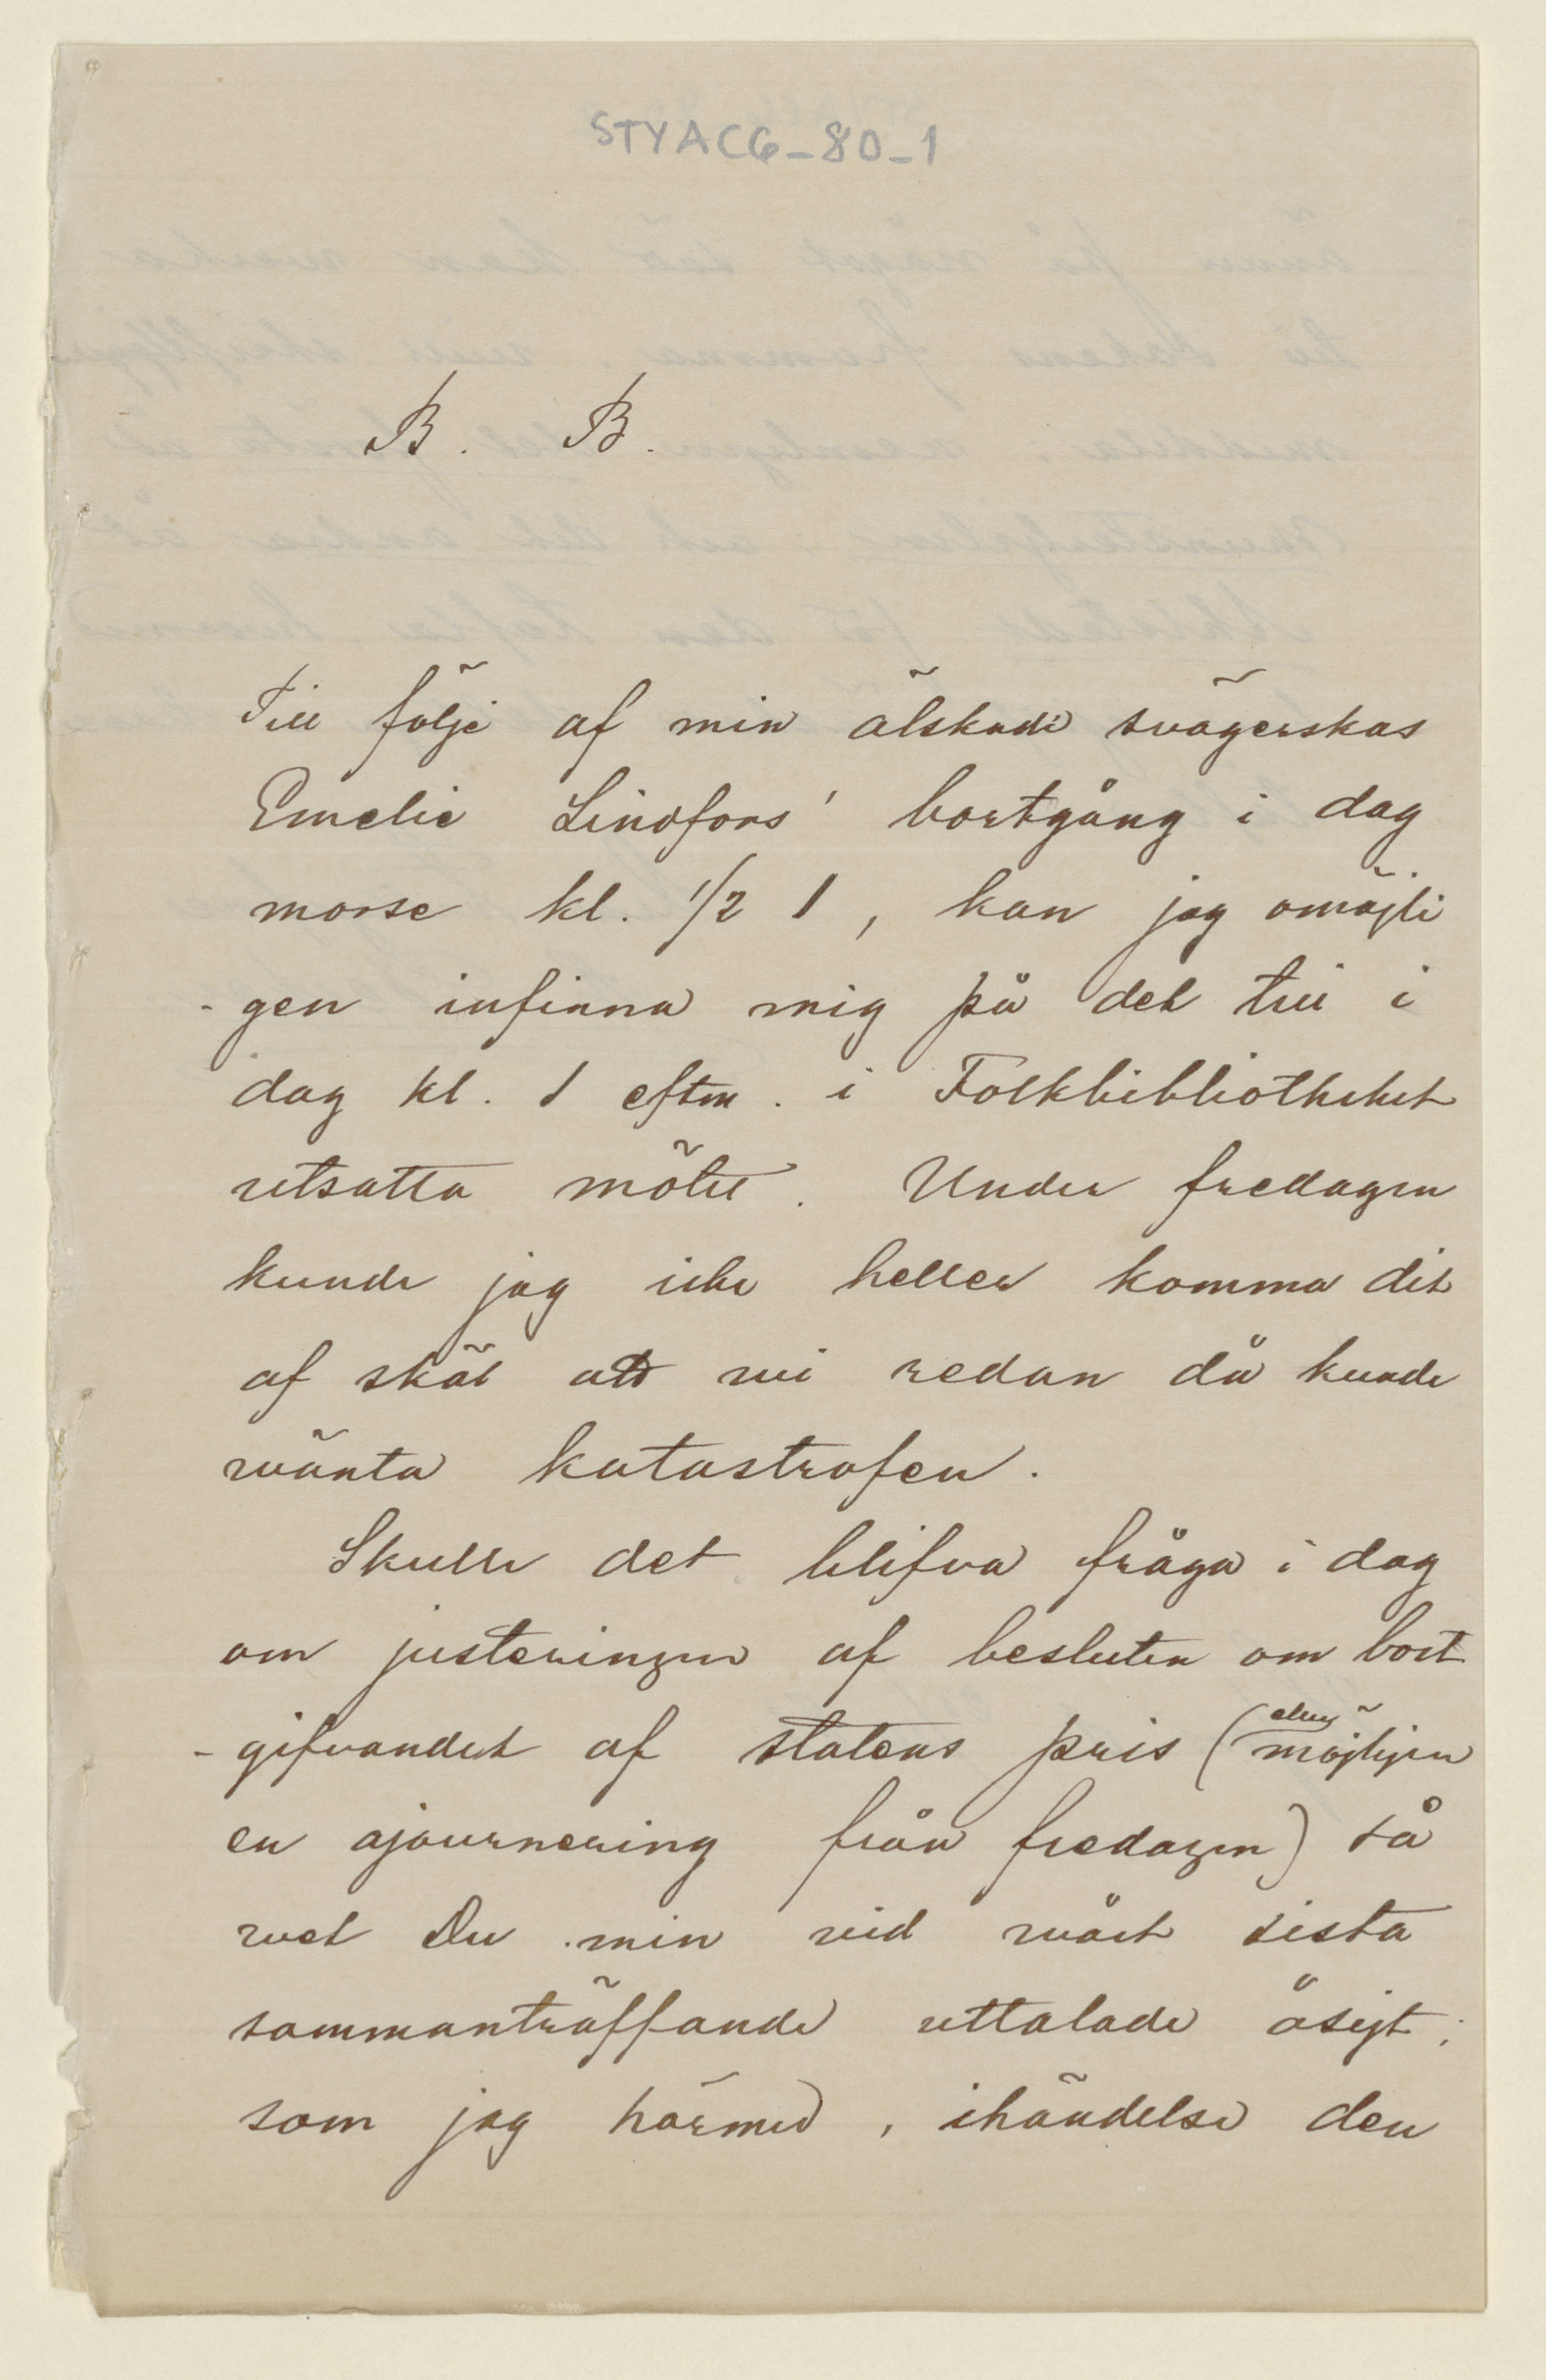 STYACG_80_1
B. B.
Till följe af min älskade svägerskas
Emelie Lindfors' bortgång i dag
morse kl. 1/2 1, kan jag omöjli
-gen infinna mig på det till i
dag kl. 1 eftm. i Folkbibliotheket
utsatta mötet. Under fredagen
kunde jag icke heller komma dit
af skäl att wi redan då kunde
wänta katastrofen.
Skulle det blifva fråga i dag
om justeringen af besluten om bort
-gifvandet af statens pris (eller möjligen
en ajournering från fredagen) så
wet Du min vid wårt sista
sammanträffande uttalade åsigt;
som jag härmed, ihändelse den